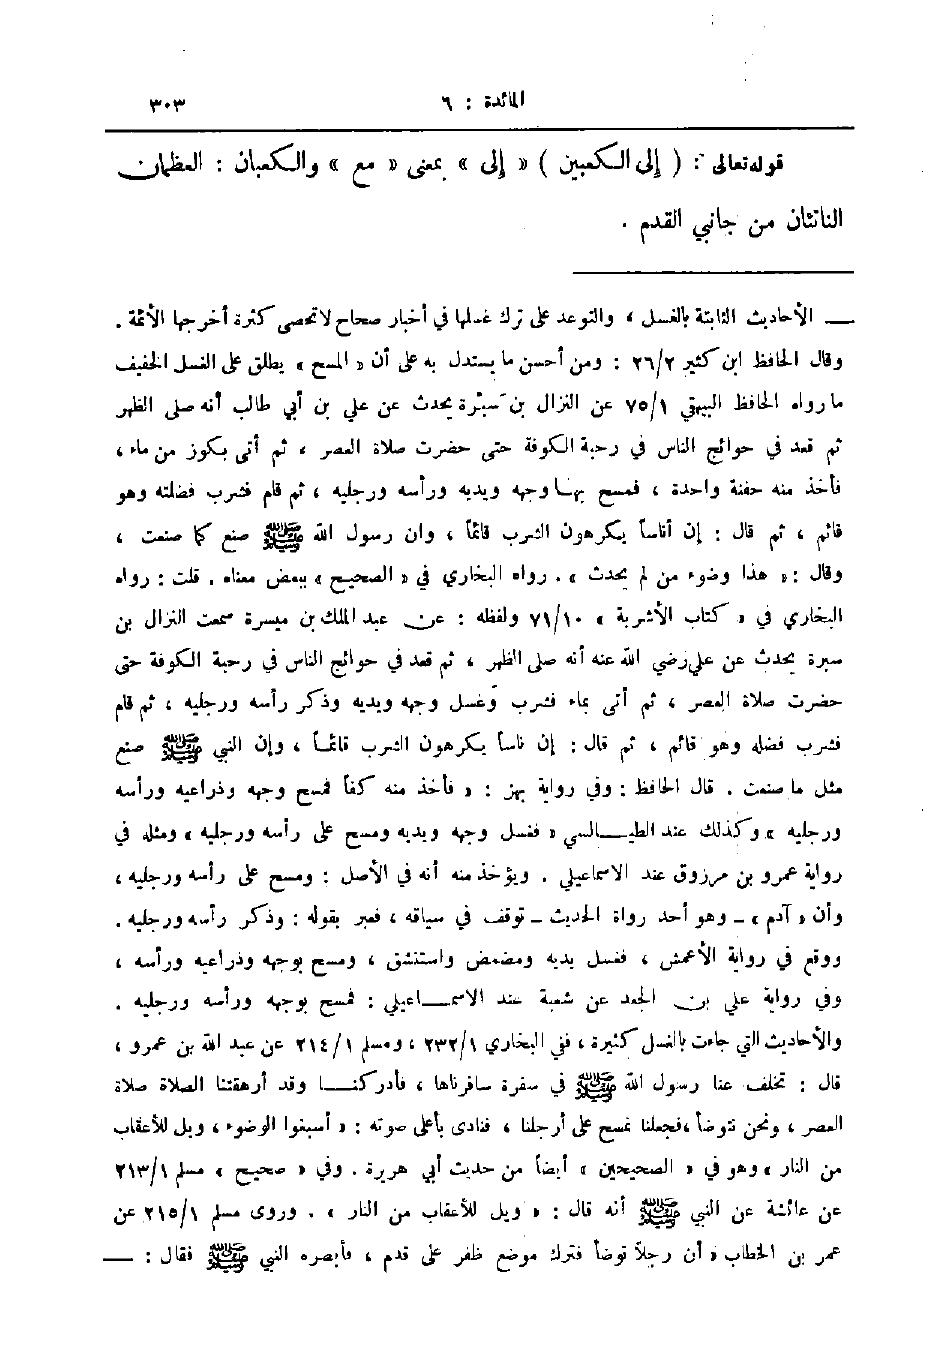 المائدة : ٦ ٣٠٣
قوله تعالى : ( إلى الكعبين ) « إلى » بمعنى « مع » والكعبان : العظمان
الناتئان من جانبي القدم .
ــ الأحاديث الثابتة بالغسل ، والتوعد على ترك غسلها في أخبار صحاح لا تحصى كثرة أخرجها الأئمة .
وقال الحافظ ابن كثير ٢٦/٢ : ومن أحسن ما يستدل به على أن « المسح » يطلق على الغسل الخفيف
ما رواه الحافظ البيهقي ٧٥/١ عن النزال بن سبْرة يحدث عن علي بن أبي طالب أنه صلى الظهر
ثم قعد في حوائج الناس في رحبة الكوفة حتى حضرت صلاة العصر ، ثم أتى بكوز من ماء ،
فأخذ منه حفنة واحدة ، فمسح بها وجهه ويديه ورأسه ورجليه ، ثم قام فشرب فضلته وهو
قائم ، ثم قال : إن أناساً يكرهون الشرب قائماً ، وان رسول الله ﷺ صنع كما صنعت ،
وقال : « هذا وضوء من لم يحدث » . رواه البخاري في « الصحيح » ببعض معناه . قلت : رواه
البخاري في « كتاب الأشربة » ٧١/١٠ ولفظه : عن عبد الملك بن ميسرة سمعت النزال بن
سبرة يحدث عن علي رضي الله عنه أنه صلى الظهر ، ثم قعد في حوائج الناس في رحبة الكوفة حتى
حضرت صلاة العصر ، ثم أتى بماء فشرب وغسل وجهه ويديه وذكر رأسه ورجليه ، ثم قام
فشرب فضله وهو قائم ، ثم قال : إن ناساً يكرهون الشرب قائماً ، وإن النبي ﷺ صنع
مثل ما صنعت . قال الحافظ : وفي رواية بهز : « فأخذ منه كفاً فمسح وجهه وذراعيه ورأسه
ورجليه » وكذلك عند الطيالسي « فغسل وجهه ويديه ومسح على رأسه ورجليه » ومثله في
رواية عمرو بن مرزوق عند الاسماعيلي . ويؤخذ منه أنه في الأصل : ومسح على رأسه ورجليه ،
وأن « آدم » ـ وهو أحد رواة الحديث ـ توقف في سياقه ، فعبر بقوله : وذكر رأسه ورجليه .
ووقع في رواية الأعمش ، فغسل يديه ومضمض واستنشق ، ومسح بوجهه وذراعيه ورأسه ،
وفي رواية علي بن الجعد عن شعبة عند الاسماعيلي : فمسح بوجهه ورأسه ورجليه .
والأحاديث التي جاءت بالغسل كثيرة ، ففي البخاري ٢٣٢/١ ، ومسلم ٢١٤/١ عن عبد الله بن عمرو ،
قال : تخلف عنا رسول الله ﷺ في سفرة سافرناها ، فأدركنا وقد أرهقتنا الصلاة صلاة
العصر ، ونحن نتوضأ ، فجعلنا نمسح على أرجلنا ، فنادى بأعلى صوته : « أسبغوا الوضوء ، ويل للأعقاب
من النار » وهو في « الصحيحين » أيضاً من حديث أبي هريرة . وفي « صحيح » مسلم ٢١٣/١
عن عائشة عن النبي ﷺ أنه قال : « ويل للأعقاب من النار » . وروى مسلم ٢١٥/١ عن
عمر بن الخطاب « أن رجلاً توضأ فترك موضع ظفر على قدم ، فأبصره النبي ﷺ فقال : ــ